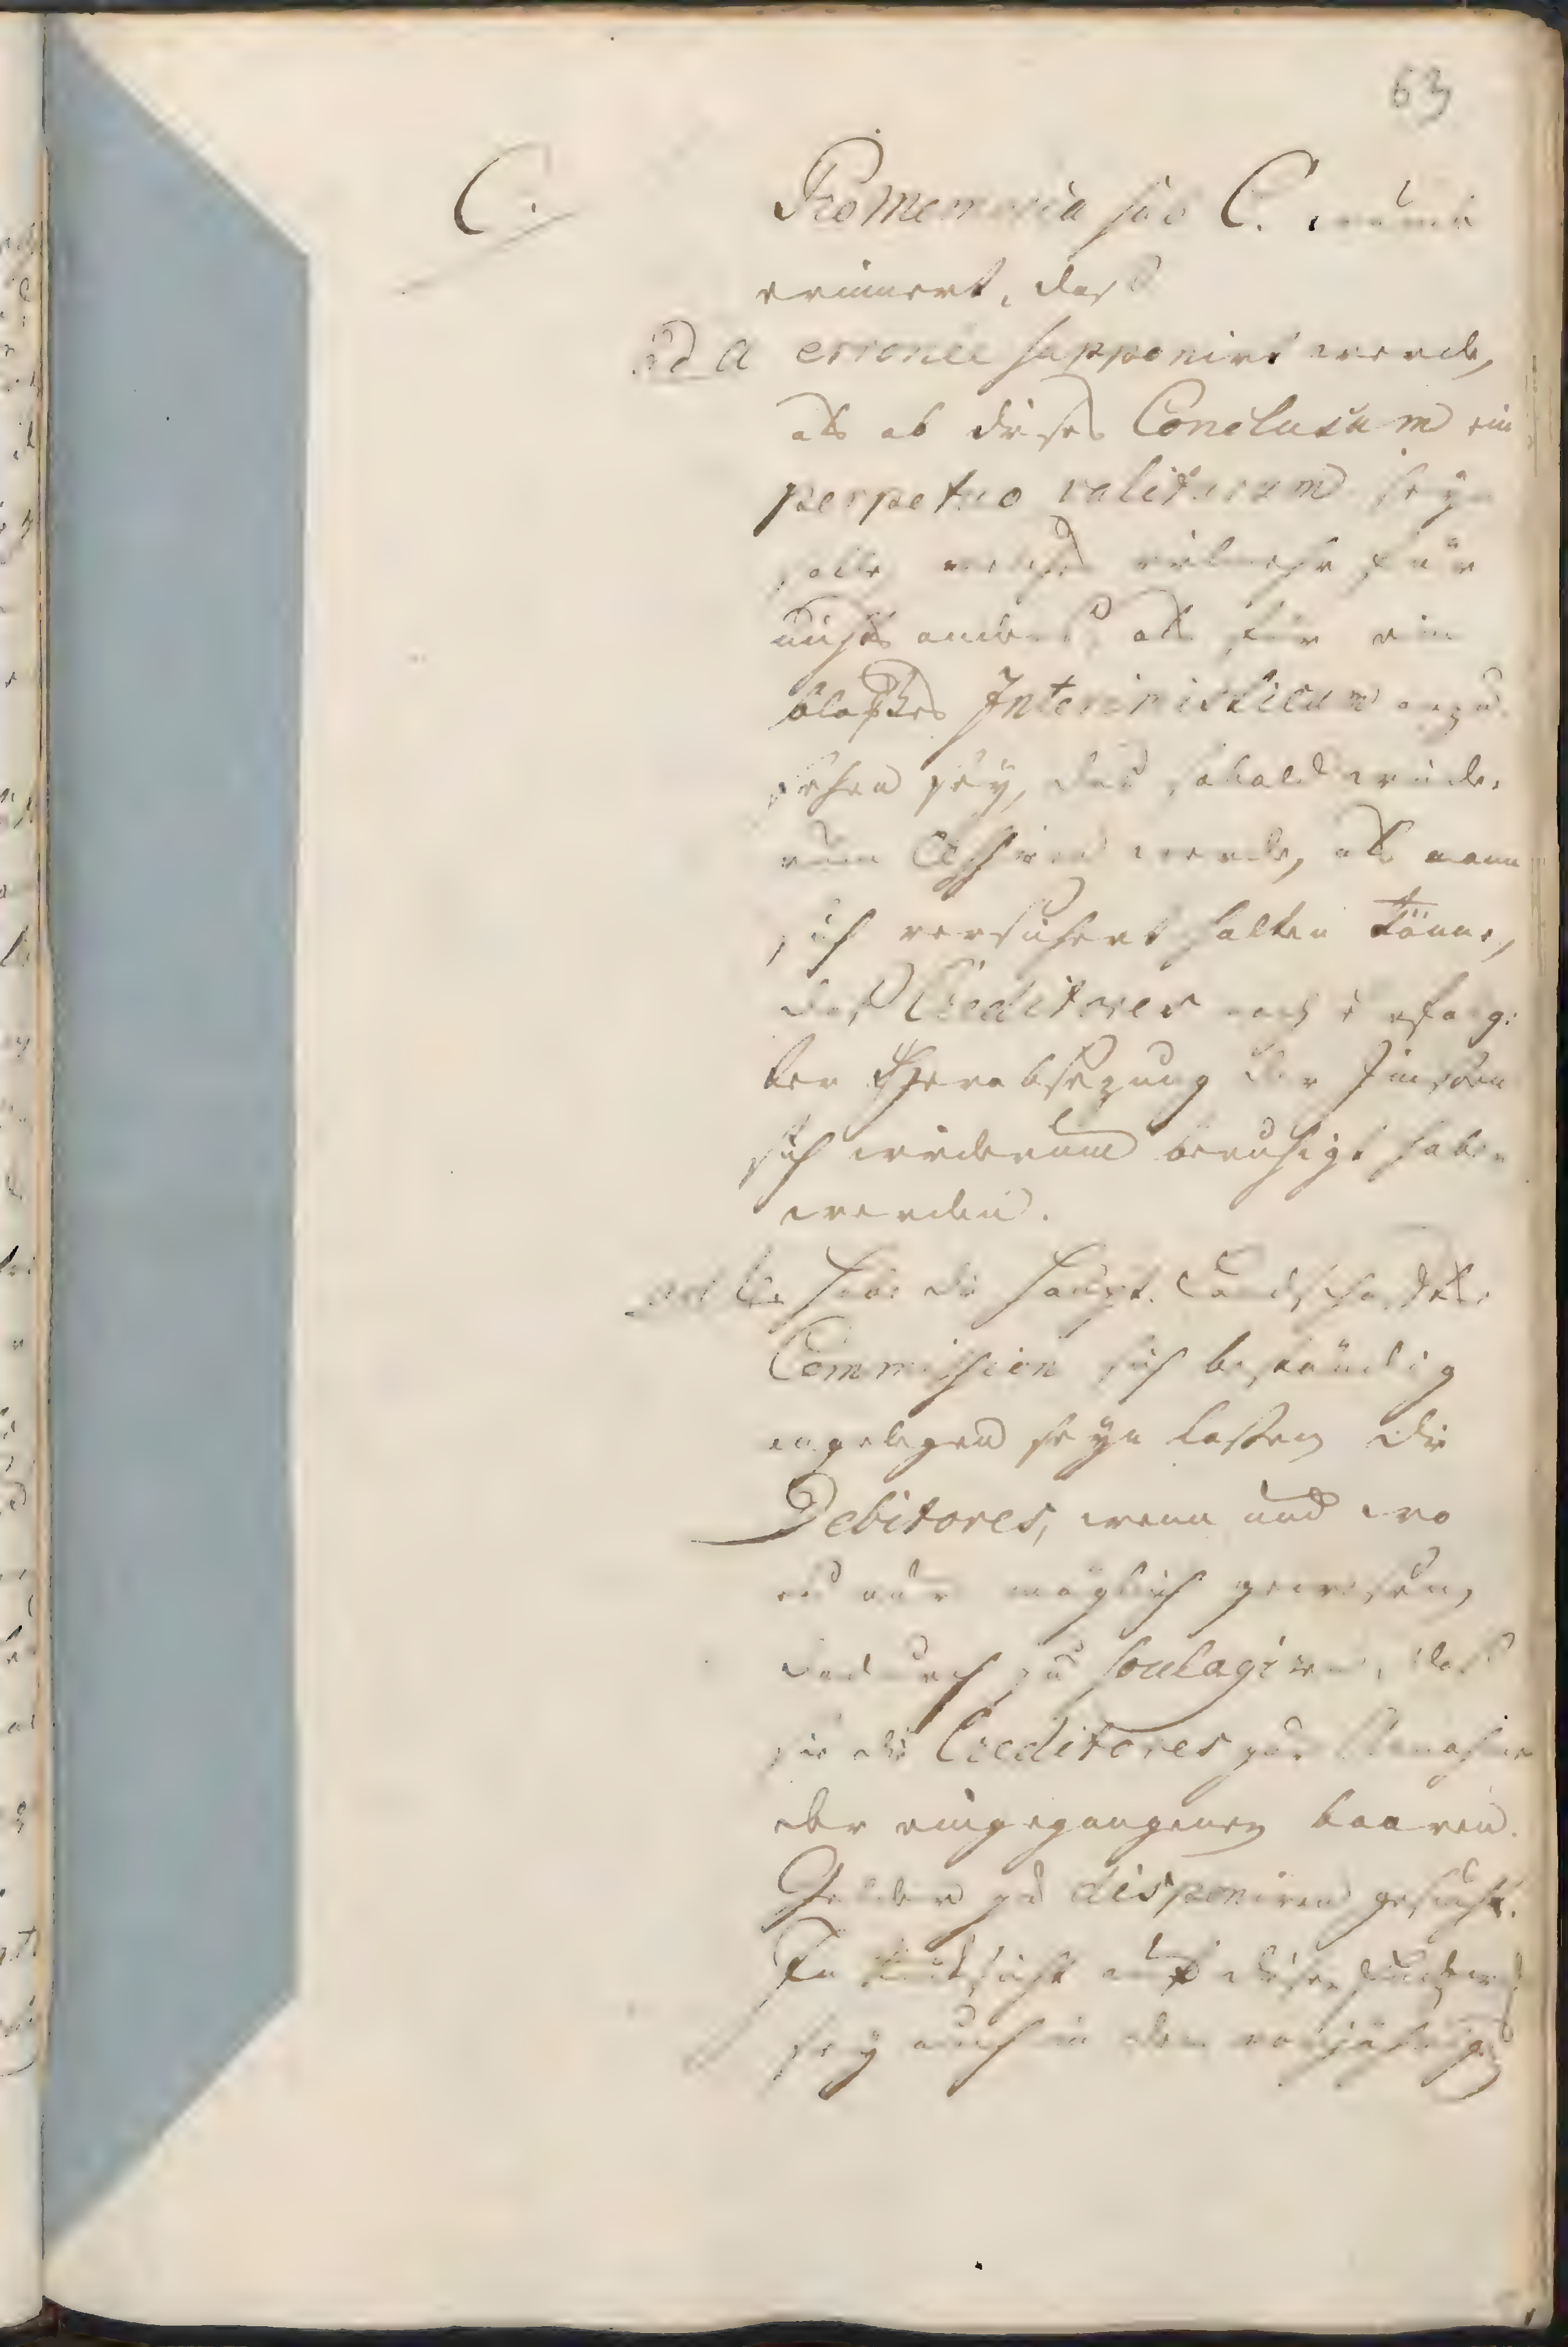 63
C.
Promemoria sub C. wurde
erinnert, daß
ad a erronee supponirt werde,
als ob dieses Conclusum ein
perpetuo valiturum seyn
solle, welches vielmehr für
nichts anders, als für ein
bloßes Interimisticum anzu-
sehen sey, das sobald wiede-
rum cessiren werde, als man
sich versichert halten könne,
daß Creditores nach erfolg-
ter Herabsezung der Zinsen
sich wiederum beruhigt haben
werden.
ad b. habe die Haupt-Landschafts-
Commission sich beständig
angelegen seyn lassen, die
Debitores, wenn und wo
es nur möglich gewesen,
dadurch zu soulagiren, daß
sie die Creditores zur Annahme
der eingegangenen baaren
Gelder zu disponiren gesucht.
In Rücksicht auf diesen
sey auch in dem vorjährigen